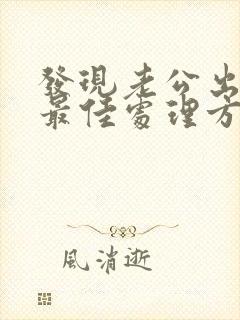 發現老公出
最佳處理方
風消逝